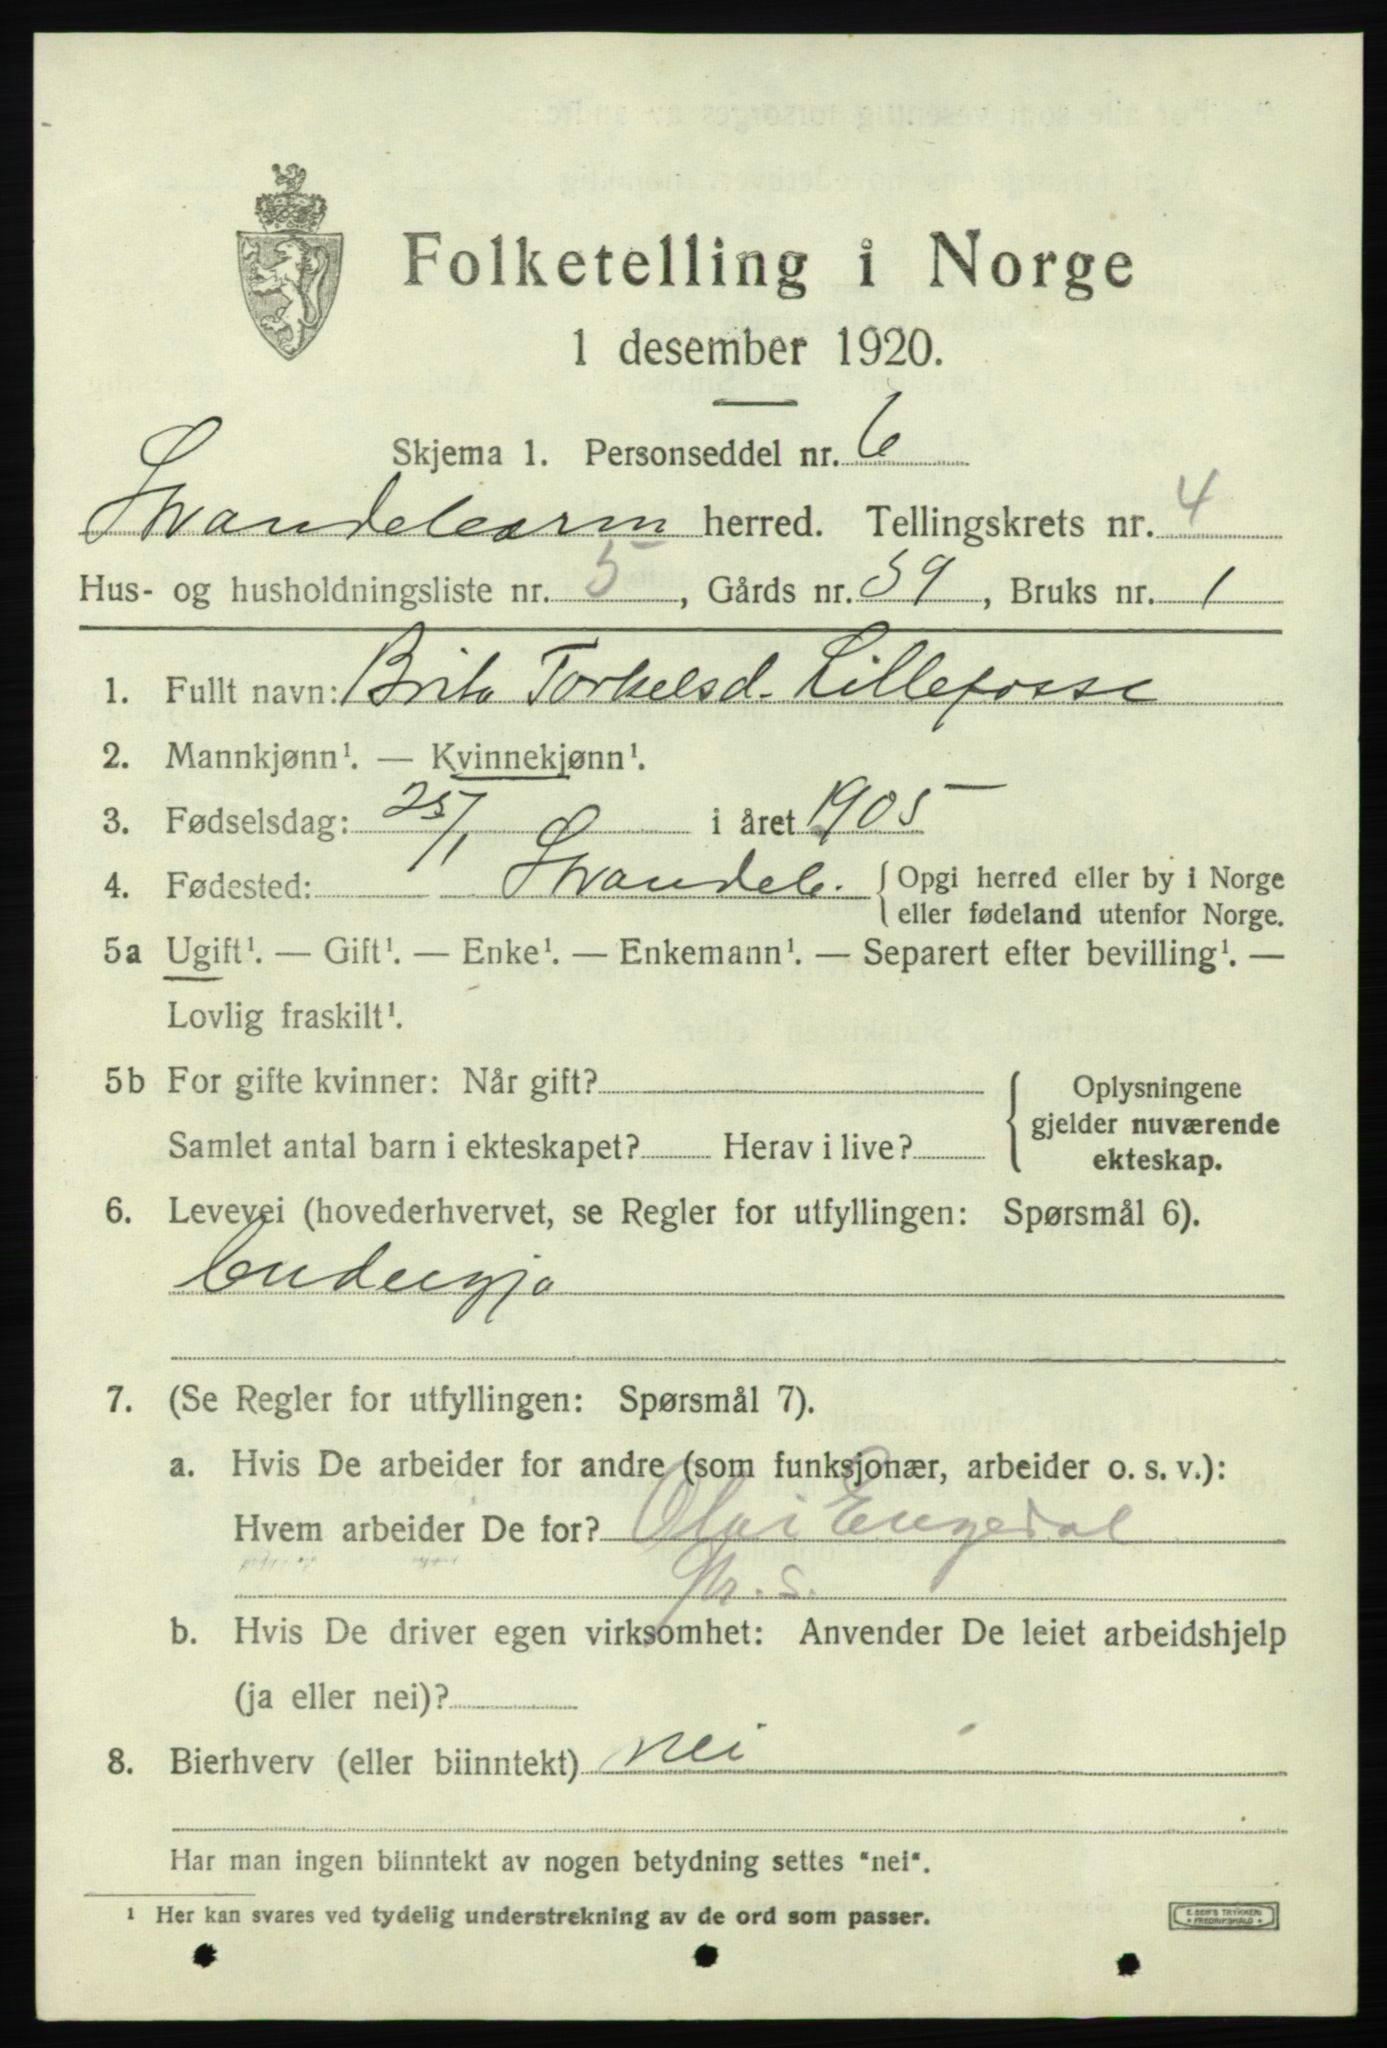 Folketelling i Norge
1 desember 1920.
Skjema 1. Personseddel nr. 6
Strandebarm herred. Tellingskrets nr. 4
Hus- og husholdningsliste nr. 5, Gårds nr. 59, Bruks nr. 1
1. Fullt navn: Brita Torkelsd. Lillefosse
2. Mannkjønn¹. — Kvinnekjønn¹.
3. Fødselsdag: 25/1 i året 1905
4. Fødested: Strandeb. { Opgi herred eller by i Norge
eller fødeland utenfor Norge.
5a Ugift¹. — Gift¹. — Enke¹. — Enkemann¹. — Separert efter bevilling¹. —
Lovlig fraskilt¹.
5b For gifte kvinner: Når gift? { Oplysningene
gjelder nuværende
Samlet antal barn i ekteskapet? Herav i live?
ekteskap.
6. Levevei (hovederhvervet, se Regler for utfyllingen: Spørsmål 6).
budeigja
7. (Se Regler for utfyllingen: Spørsmål 7).
a. Hvis De arbeider for andre (som funksjonær, arbeider o. s. v.):
Hvem arbeider De for? Olai Engedal
b. Hvis De driver egen virksomhet: Anvender De leiet arbeidshjelp
(ja eller nei)?
8. Bierhverv (eller biinntekt) nei
Har man ingen biinntekt av nogen betydning settes "nei".
¹ Her kan svares ved tydelig understrekning av de ord som passer.